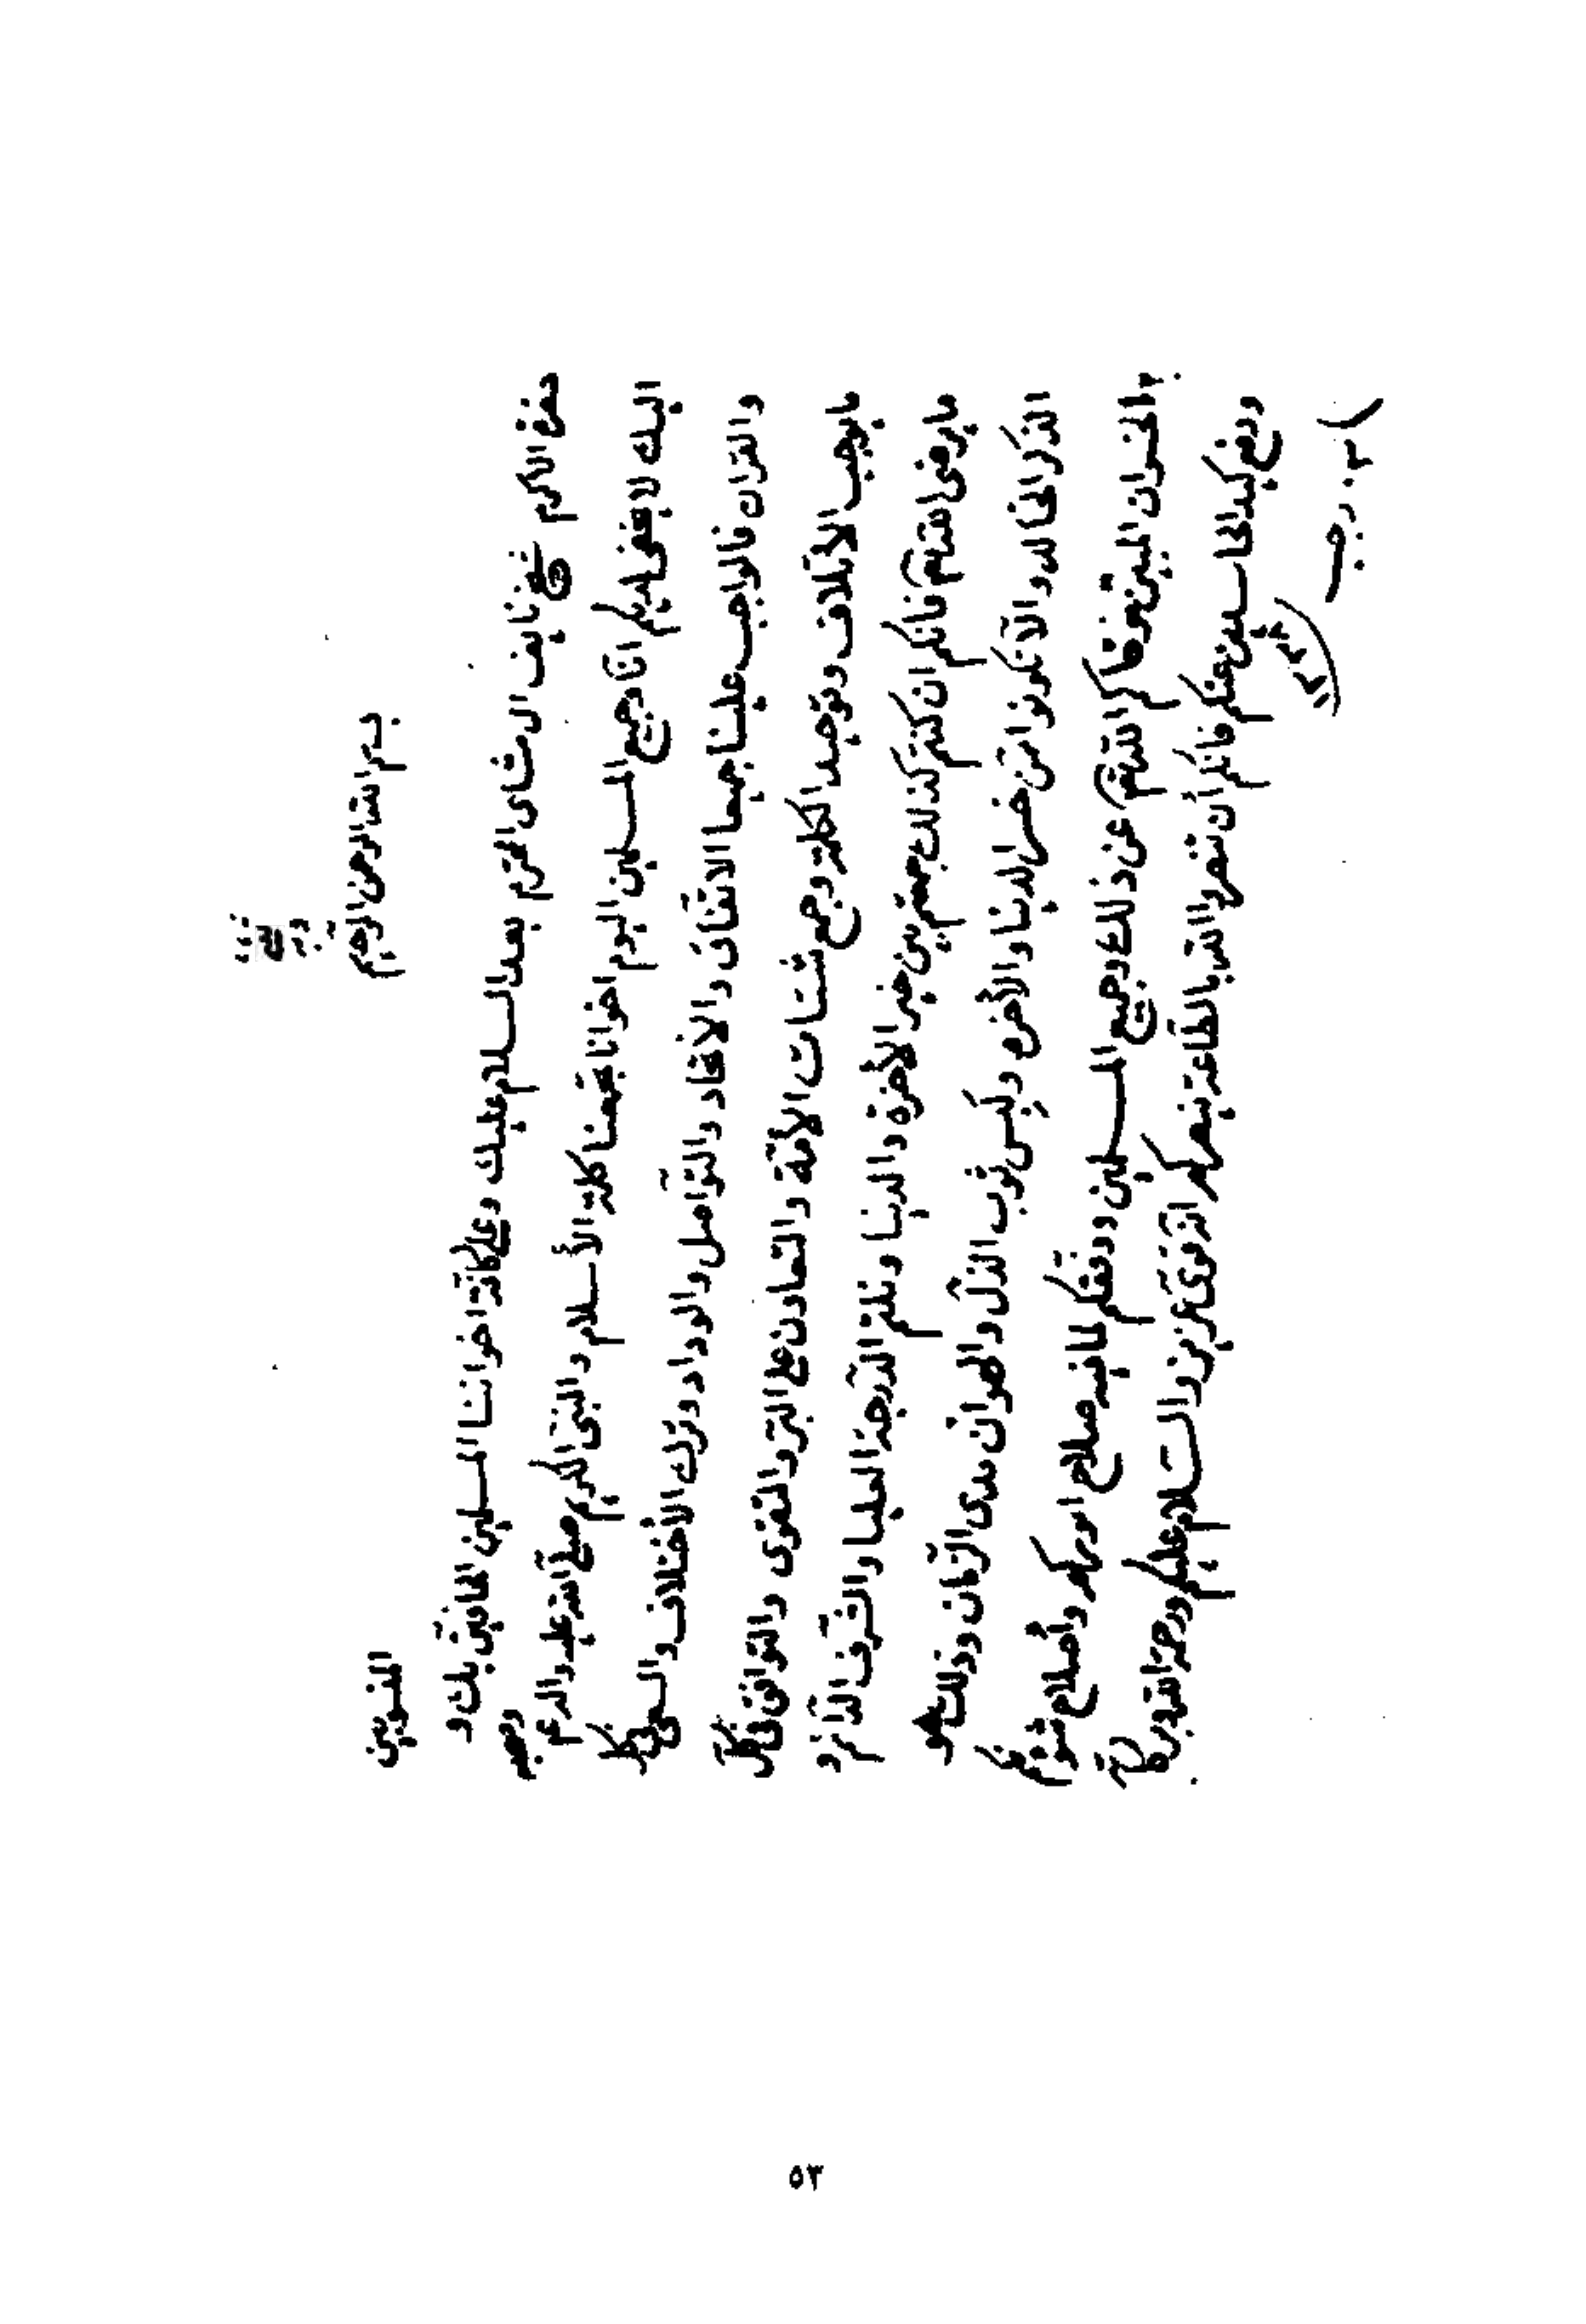 بسم الله الرحمن الرحيم
حضرة الاكرم نايف الرشادى المحترم بعد السلام عليك وعلى كافة اخواننا المسلمين القاطنين بلدة القزوين
اليك لا يخفى عليكم انّا جميع المسلمين اليوم اخوان تجمعنا كلمة الأسلام والنبى الكريم صلى الله عليه واله وسلم
والقرآن فالواجب علينا جميعا الاتفاق والاتحاد والتواصل والوداد وترك الأختلاف والسعى فى كل
ما يوجب الأئتلاف وتوحيد الكلمة وجمع شتات الامّة والتعاون على البرّ والتقوى والتوافق فى كل
ما يرضى الله تعالى فانكم ان كنتم كذلك جمعتم بين خير الأخرة والدنيا ونلتم الدرجة العليا والشرف الدائم و
الذكر الخالد والّا تكونوا ممّن خسر الدنيا والأخرة ولبس ثوب الذلّ والهوان مدى الزمان وذلك هو
الخسران المبين وقاكم الله تعالى عن ذلك وجميع المسلمين ووفقكم لما فيه صلاح امركم واصلاح شؤنكم
ودفع كيد المعاندين عنكم فانكم ان تنصروا الله بالطاعة ينصركم النصر العزيز والسلام عليكم ورحمة الله وبركاته
رجب
٥٣